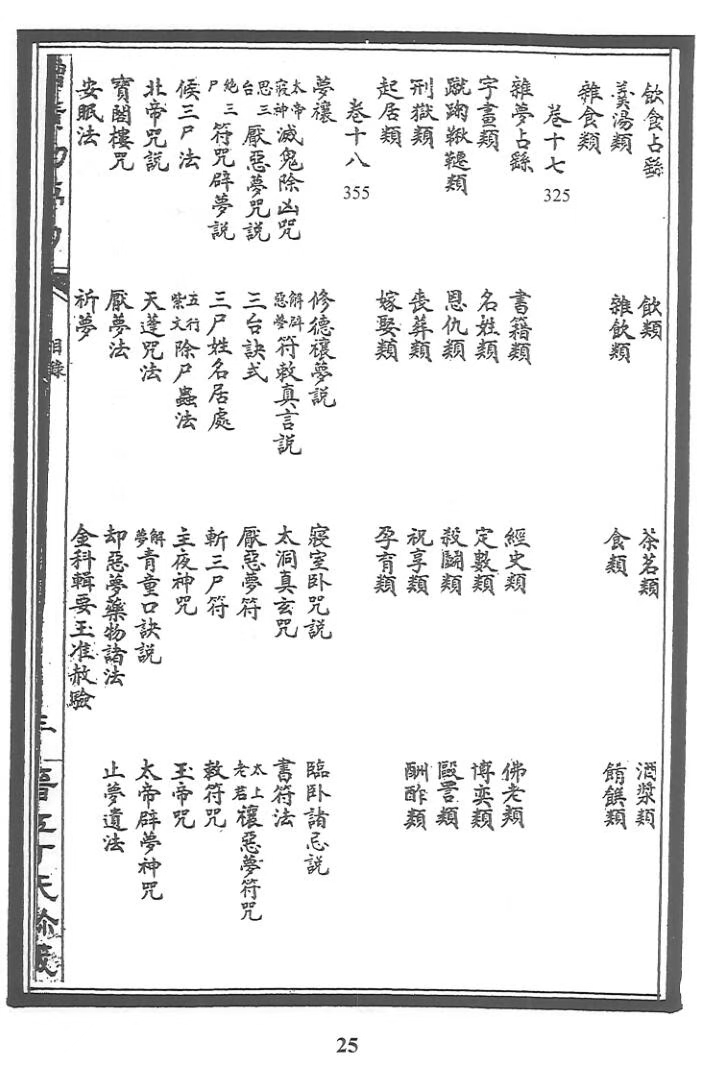 飲食占繇　飲類　茶茗類　酒漿類
羹湯類　雜飲類　食類　餚饌類
雜食類
卷十七 325
雜夢占繇　書籍類　經史類　佛老類
字畫類　名姓類　定數類　博奕類
蹴踘鞦韆類　恩仇類　殺鬬類　毆詈類
刑獄類　喪葬類　祝享類　酬酢類
起居類　嫁娶類　孕育類
卷十八 355
夢禳　修德禳夢説　寢室卧咒説　臨卧諸忌説
太帝寢神滅鬼除凶咒　解辟惡夢符敕真言説　太洞真玄咒　書符法
思三台厭惡夢咒説　三台訣式　厭惡夢符　太上老君禳惡夢符咒
絶三尸符咒辟夢説　三尸姓名居處　斬三尸符　敕符咒
候三尸法　五行紫文除尸蟲法　主夜神咒　玉帝咒
北帝咒説　天蓬咒法　解夢青童口訣説　太帝辟夢神咒
寶閣樓咒　厭夢法　却惡夢藥物諸法　止夢遺法
安眠法　祈夢　金科輯要玉准赦驗
目錄
25